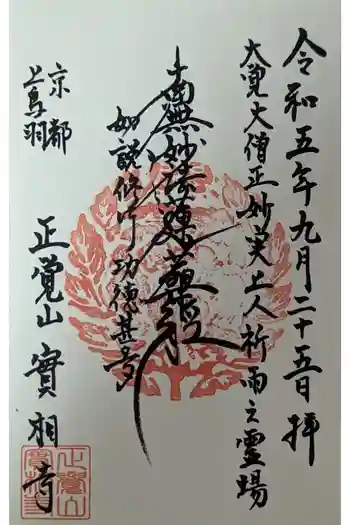 令和五年九月二十五日拝
大覚大僧正妙実上人祈雨之霊場
南無妙法蓮華経
如説修行功徳甚多
京都
上鳥羽
正覚山 實相寺